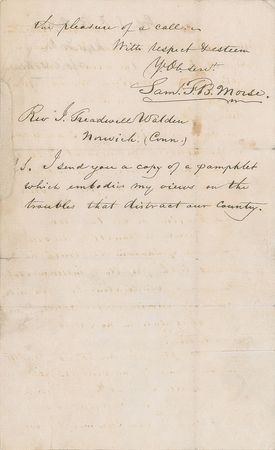 the pleasure of a call.
With respect & esteem
Yr Ob. servt.
Saml. F. B. Morse.
Rev J. Treadwell Walden
Norwich. (Conn.)
P.S. I send you a copy of a pamphlet
which embodies my views on the
troubles that distract our country.